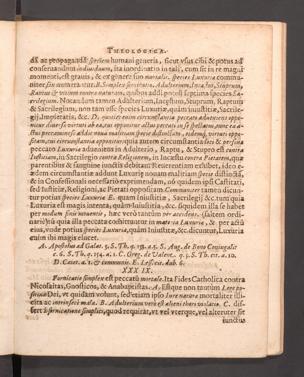 THEOLOGICA.
dã ac propagandã speciem humani generis, sicut usus cibi & potus ad
conservandum individuum, ita inordinatio in tali, cum sit in re magni
momenti, est gravis, & ex genere suo mortalis. species Luxuriæ communi-
ter sex numerantur. Simplex fornicatio, Adulterium, Incestus, Stuprum,
Raptus & vitium contra naturam, quibus addi potest septima species Sa-
crilegium. Notandum tamen Adulterium, Incestum, Stuprum, Raptum
& Sacrilegium, non tam esse species Luxuriæ, quàm Iniustitiæ, Sacrile-
gij, Impietatis, &c. D.
peccato Luxuriæ adveniant in Adulterio, Raptu, & Stupro est contra
Iustitiam, in Sacrilegio contra Religionem, in Incestu contra Pietatem, quæ
parentibus & sanguine iunctis debitam Reverentiam exhibet, ideo e-
ædem circumstantiæ addunt Luxuriæ novam malitiam specie distinctã,
& in Confessionali necessario exprimendam, eò quòd eædem ipsæ Castitati,
sed Iustitiæ, Religioni, ac Pietati opposita sint. Communiter tamen dicun-
tur potius species Luxuriæ E. quàm Iniustitiæ, Sacrilegij &c. tum quia
Luxuria est magis intenta, quàm Iniustitia, &c. siquidem illa se habet
per modum finis
nariò) tũ quia illa peccata committuntur in materia Luxuriæ, & per actũ
eius, unde potius species Luxuriæ, quàm Iniustitiæ, &c. dicuntur, Luxuria
enim ibi magis elucet.
A. Apostolus ad Galat. 5. S. Th. q. 153. a. 3. S. Aug. de Bono Coniugali
c. 6. S. Th. q. 154. a. 1. C. Greg. de Valent. q. 3. S. Th. cit. a. 10.
D. Caiet. a. 1. & communis. E. Lessius. dub. 6.
XXXIX.
Fornicatio simplex est peccatũ mortale. Ita Fides Catholica contra
Nicolaitas, Gnosticos, & Anabaptistas. A. Estque non tantùm Lege po-
sitiva Dei, ut quidam volunt, sed etiam ipso Iure naturæ mortaliter illi-
cita ac intrinsecè mala. B. Adulterium verò est alieni thori violatio. C. dif-
fert à fornicatione simplici, quòd requirat, ut vel uterque, vel alteruter sit
iunctus